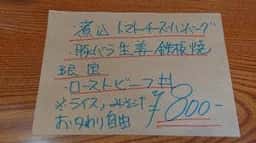 ・煮込 トマトチーズハンバーグ
・豚バラ生姜鉄板焼
・ローストビーフ丼
※ライス、みそ汁
おかわり自由
¥800-